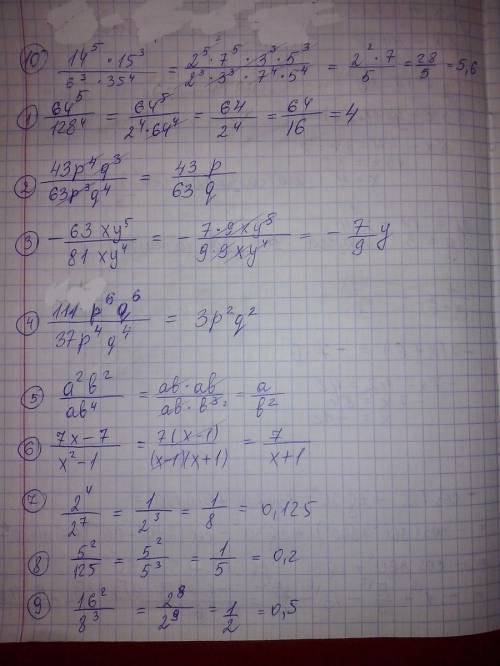 10) 14⁵ · 15³ / 6³ · 35⁴ = 2⁵ · 7⁵ · 3³ · 5³ / 2³ · 3³ · 7⁴ · 5⁴ = 2² · 7 / 5 = 28 / 5 = 5,6
1) 64⁵ / 128⁴ = 64⁵ / 2⁴ · 64⁴ = 64 / 2⁴ = 64 / 16 = 4
2) 43p⁴q³ / 63p³q⁴ = 43 p / 63 q
3) - 63 xy⁵ / 81 xy⁴ = - 7 · 9 xy⁵ / 9 · 9 xy⁴ = - 7/9 y
4) 111 p⁶ q⁶ / 37p⁴ q⁴ = 3p²q²
5) a²b² / ab⁴ = ab · ab / ab · b³ ² = a / b²
6) 7x - 7 / x² - 1 = 7(x-1) / (x-1)(x+1) = 7 / x+1
7) 2⁴ / 2⁷ = 1 / 2³ = 1 / 8 = 0,125
8) 5² / 125 = 5² / 5³ = 1 / 5 = 0,2
9) 16² / 8³ = 2⁸ / 2⁹ = 1 / 2 = 0,5